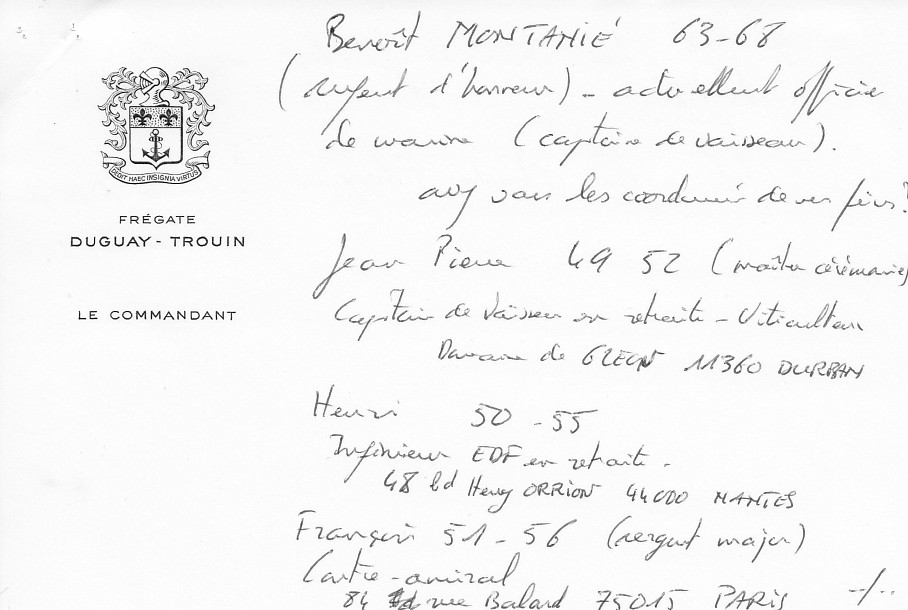 Benoît MONTANIÉ 63-68
(sergent d'honneur) - actuellement officier
de marine (capitaine de vaisseau).
avez vous les coordonnées de mes frères?
DEDIT HAEC INSIGNIA VIRTUS
FRÉGATE
DUGUAY - TROUIN
LE COMMANDANT
Jean Pierre 49 52 (maître cérémonies)
Capitaine de Vaisseau en retraite - Viticulteur
Domaine de GLEON 11360 DURBAN
Henri 50 - 55
Ingénieur EDF en retraite -
48 bd Henry ORRION 44000 NANTES
François 51 - 56 (sergent major)
Contre-amiral
84 rue Balard 75015 PARIS -/..